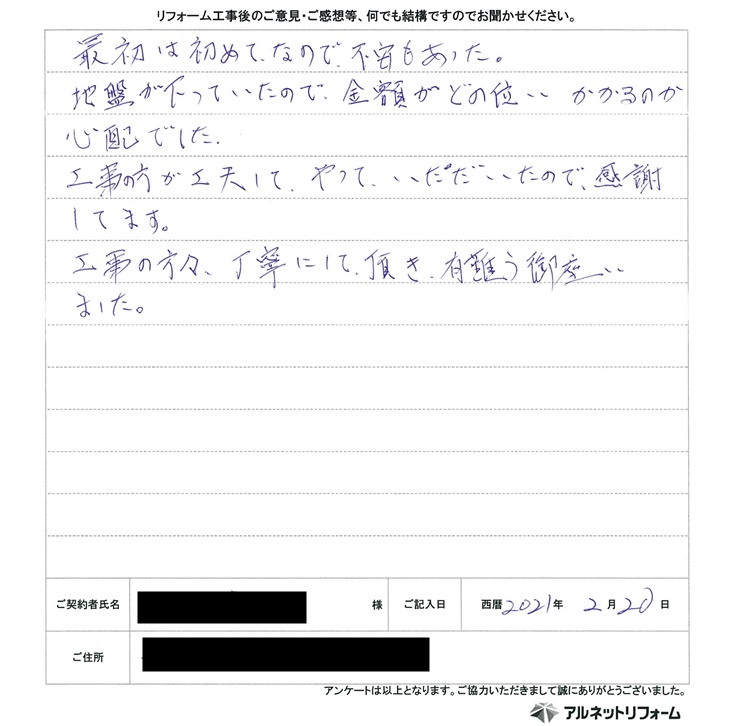 リフォーム工事後のご意見・ご感想等、何でも結構ですのでお聞かせください。
最初は初めて、なので、不安もあった。
地盤が下っていたので、金額がどの位いかかるのか
心配でした。
工事の方が工夫して、やって、いただいたので、感謝
してます。
工事の方々、丁寧にして、頂き、有難う御座い
ました。
ご契約者氏名 様 ご記入日 西暦 2021年 2月 20日
ご住所
アンケートは以上となります。ご協力いただきまして誠にありがとうございました。
アルネットリフォーム